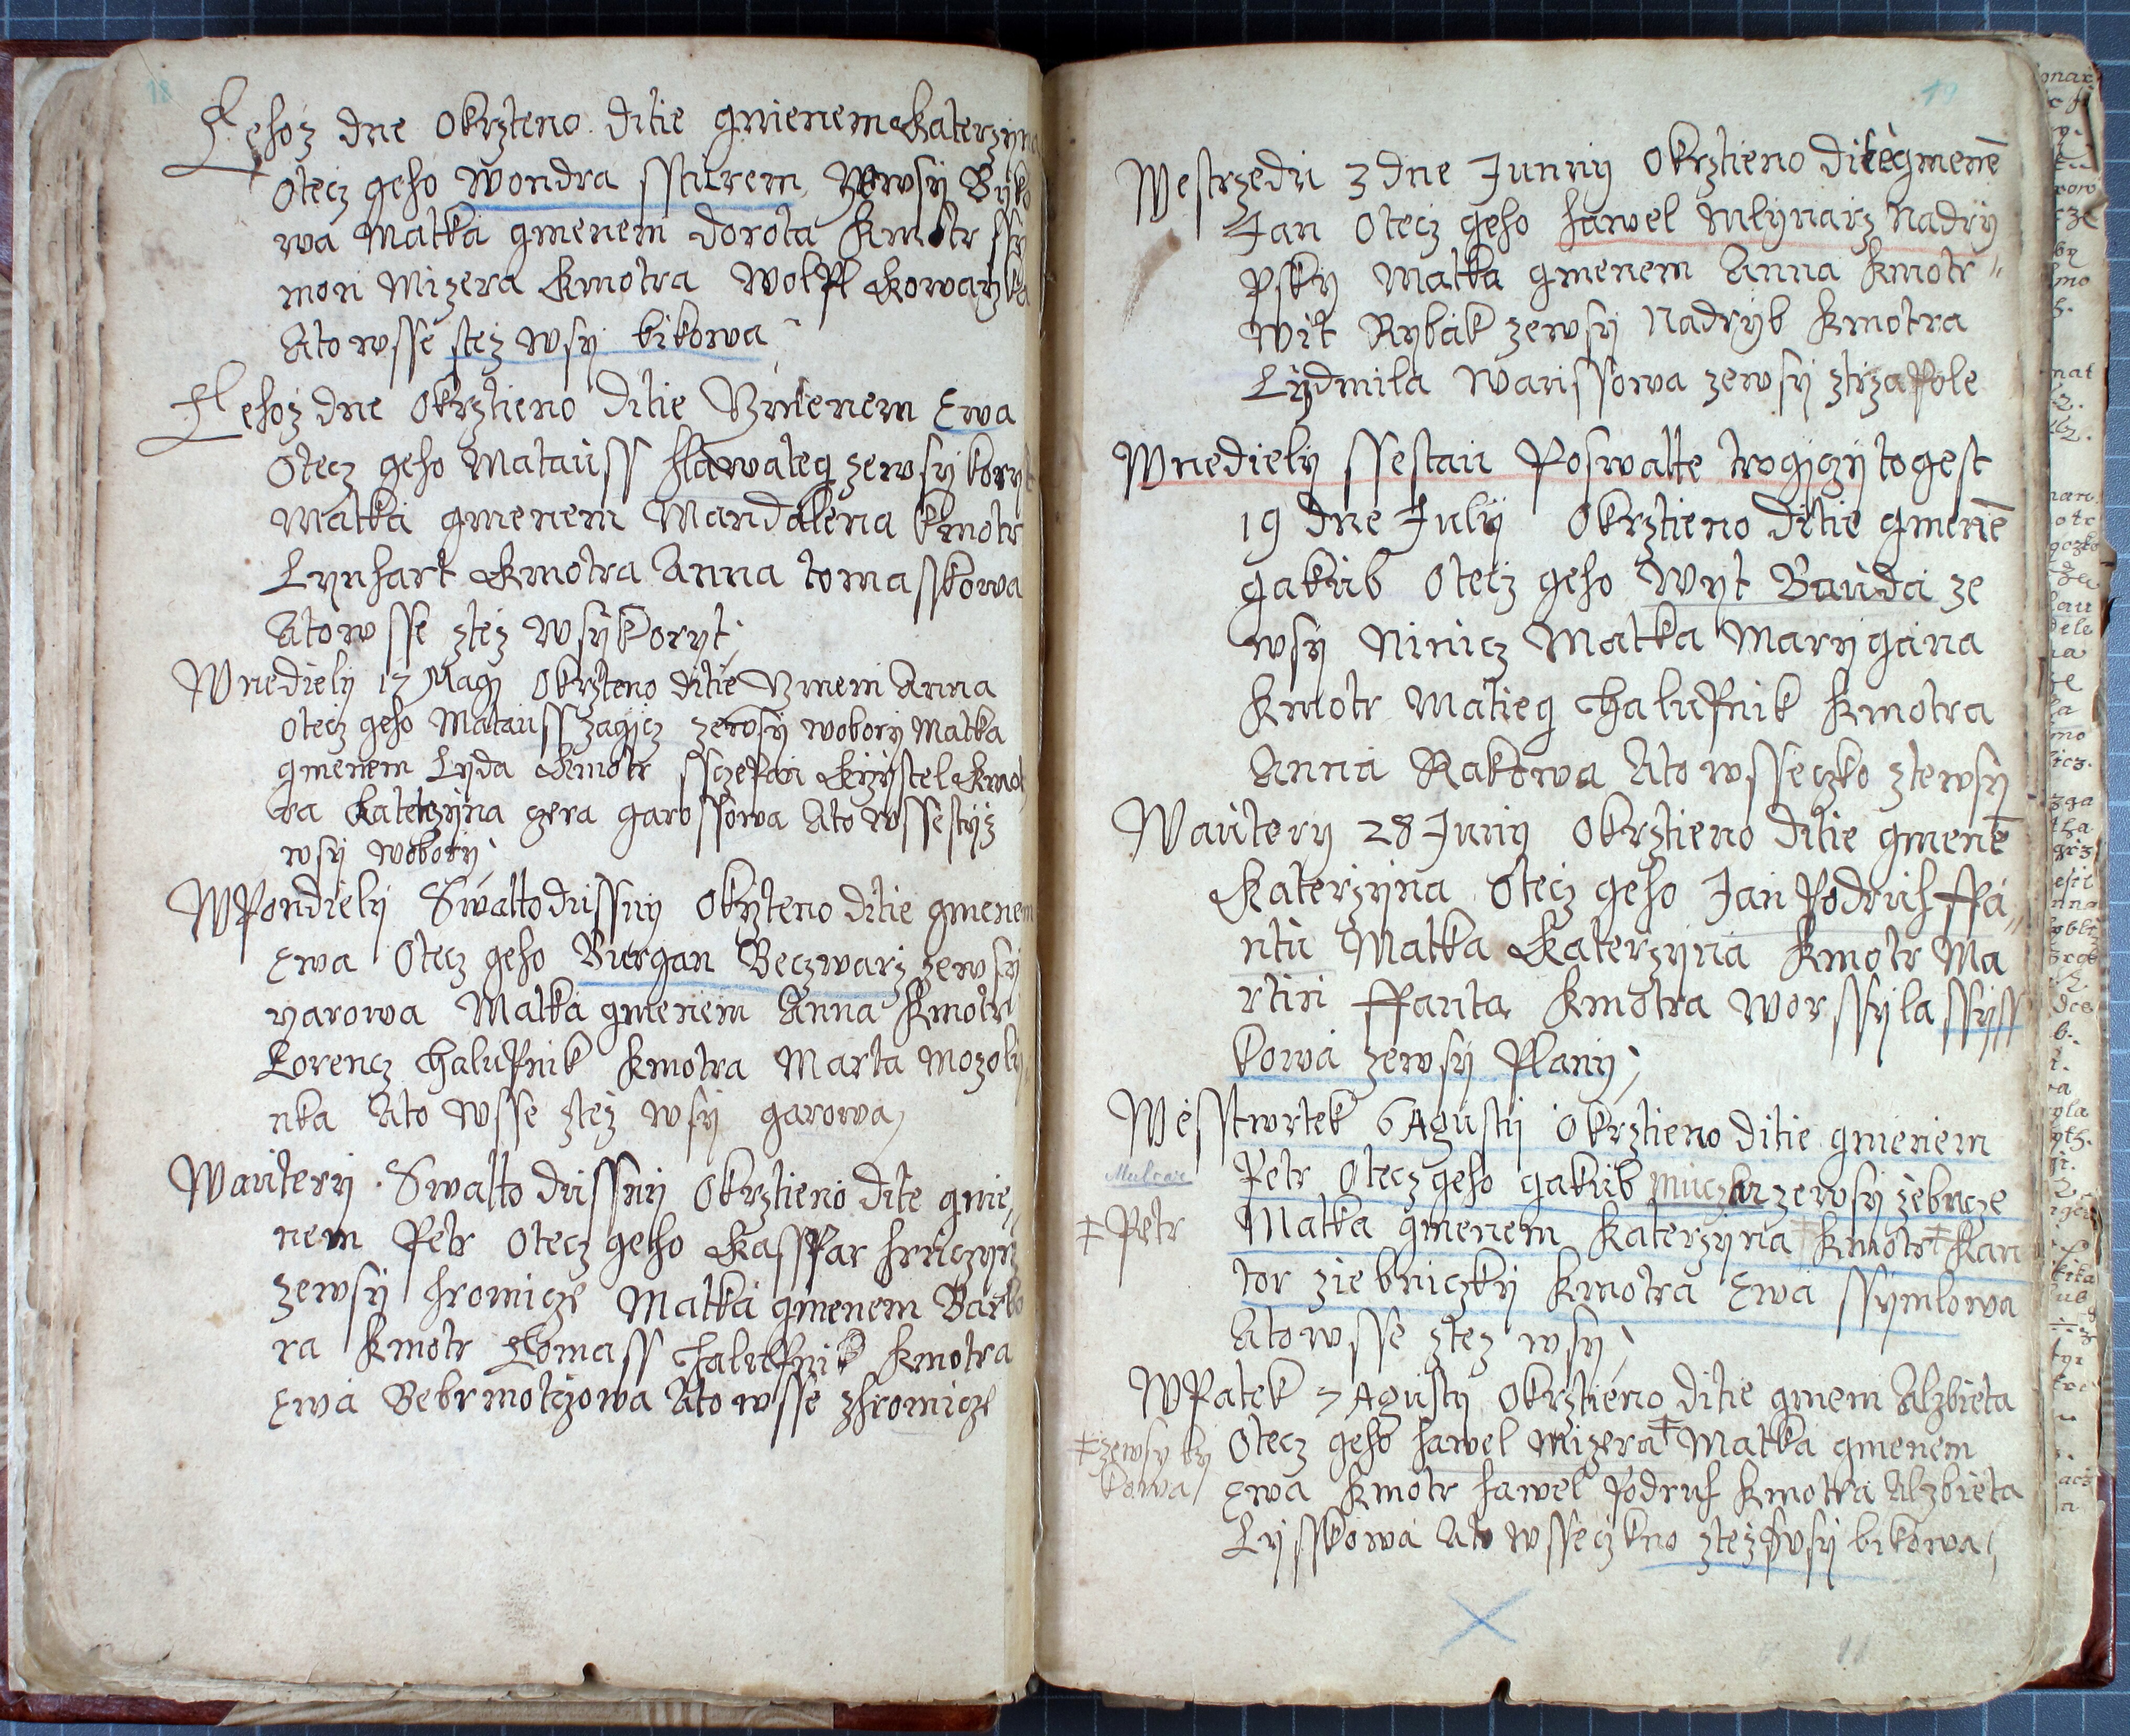 18
Tehoz dne Okrzteno ditie gmienem Katerzyna
Otecz geho Wondra ssturem zewsy Byko
wa Matka gmenem dorota Kmotr ssy
mon Mizera Kmotra Wolffl Kowarzka
Ato wsse stez wsy bikowa
Tehoz dne Okrztieno ditie Gmenem Ewa
Otecz geho Matauss hlawateg zewsy koryt
Matka gmenem Mandalena Kmotr
Lynhart Kmotra Anna tomasskowa
Atowsse ztez wsy Koryt
Wnediely 17 Magy Okrzteno ditie Gmem Anna
Otecz geho Matauss zagycz zewsy wobory Matka
gmenem Lyda Kmotr ssczepan Krzystel Kmot
ra Katerzyna gera garossowa Ato wsse styz
wsy wobory
WPondiely Swatto dussny Okrzteno ditie gmenem
Ewa Otecz geho Burgan Beczwarz zewsy
yarowa Matka gmenem Anna Kmotr
Lorencz Chalupnik Kmotra Marta Mozoly
nka Ato wsse ztez wsy garowa
Wautery Swatto dussny Okrztieno dite gmie
nem Petr Otecz geho Kasspar hrnczyrz
zewsy hromicze Matka gmenem Barbo
ra Kmotr Tomass Chalupnik Kmotra
Ewa Bebrmotczowa Ato wsse zhromicze
19
Westrzedu 3 dne Junny Okrztieno ditie gmenē
Jan Otecz geho hawel Mlynarz Nadry
psky Matka gmenem Anna Kmotr
Wit Rybak zewsy Nadryb Kmotra
Lydmila Warissowa zewsy ztrzapole
Wnediely ssestau Poswatte trogyczy togest
19 dne July Okrztieno ditie gmenē
gakub Otecz geho Wyt Bauda ze
wsy Ninicz Matka Marygana
Kmotr Matieg Chalupnik Kmotra
Anna Rakowa Ato wsseczko ztewsy
Wautery 28 Juny Okrztieno ditie gmenē
Katerzyna Otecz geho Jan Podruh ffa
ntu Matka Katerzyna Kmotr Ma
rtin ffanta Kmotra Worssyla ssyss
kowa zewsy Plany
Wesstwrtek 6 Agusty Okrztieno ditie gmenem
Mulcar
Petr Otecz geho gakub zewsy zebnicze
‡ Petr
Matka gmenem Katerzyna Kmotr ‡ Kan
tor ziebniczky Kmotra Ewa ssymlowa
Atowsse ztez wsy
WPatek 7 Agusty Okrztieno ditie gmem Alzbieta
Otecz geho hawel Mizera ‡ Matka gmenem
‡ zewsy by
kowa
Ewa Kmotr hawel Podruh Kmotra Alzbieta
Lysskowa Ato wsseczkno ztez wsy bikowa